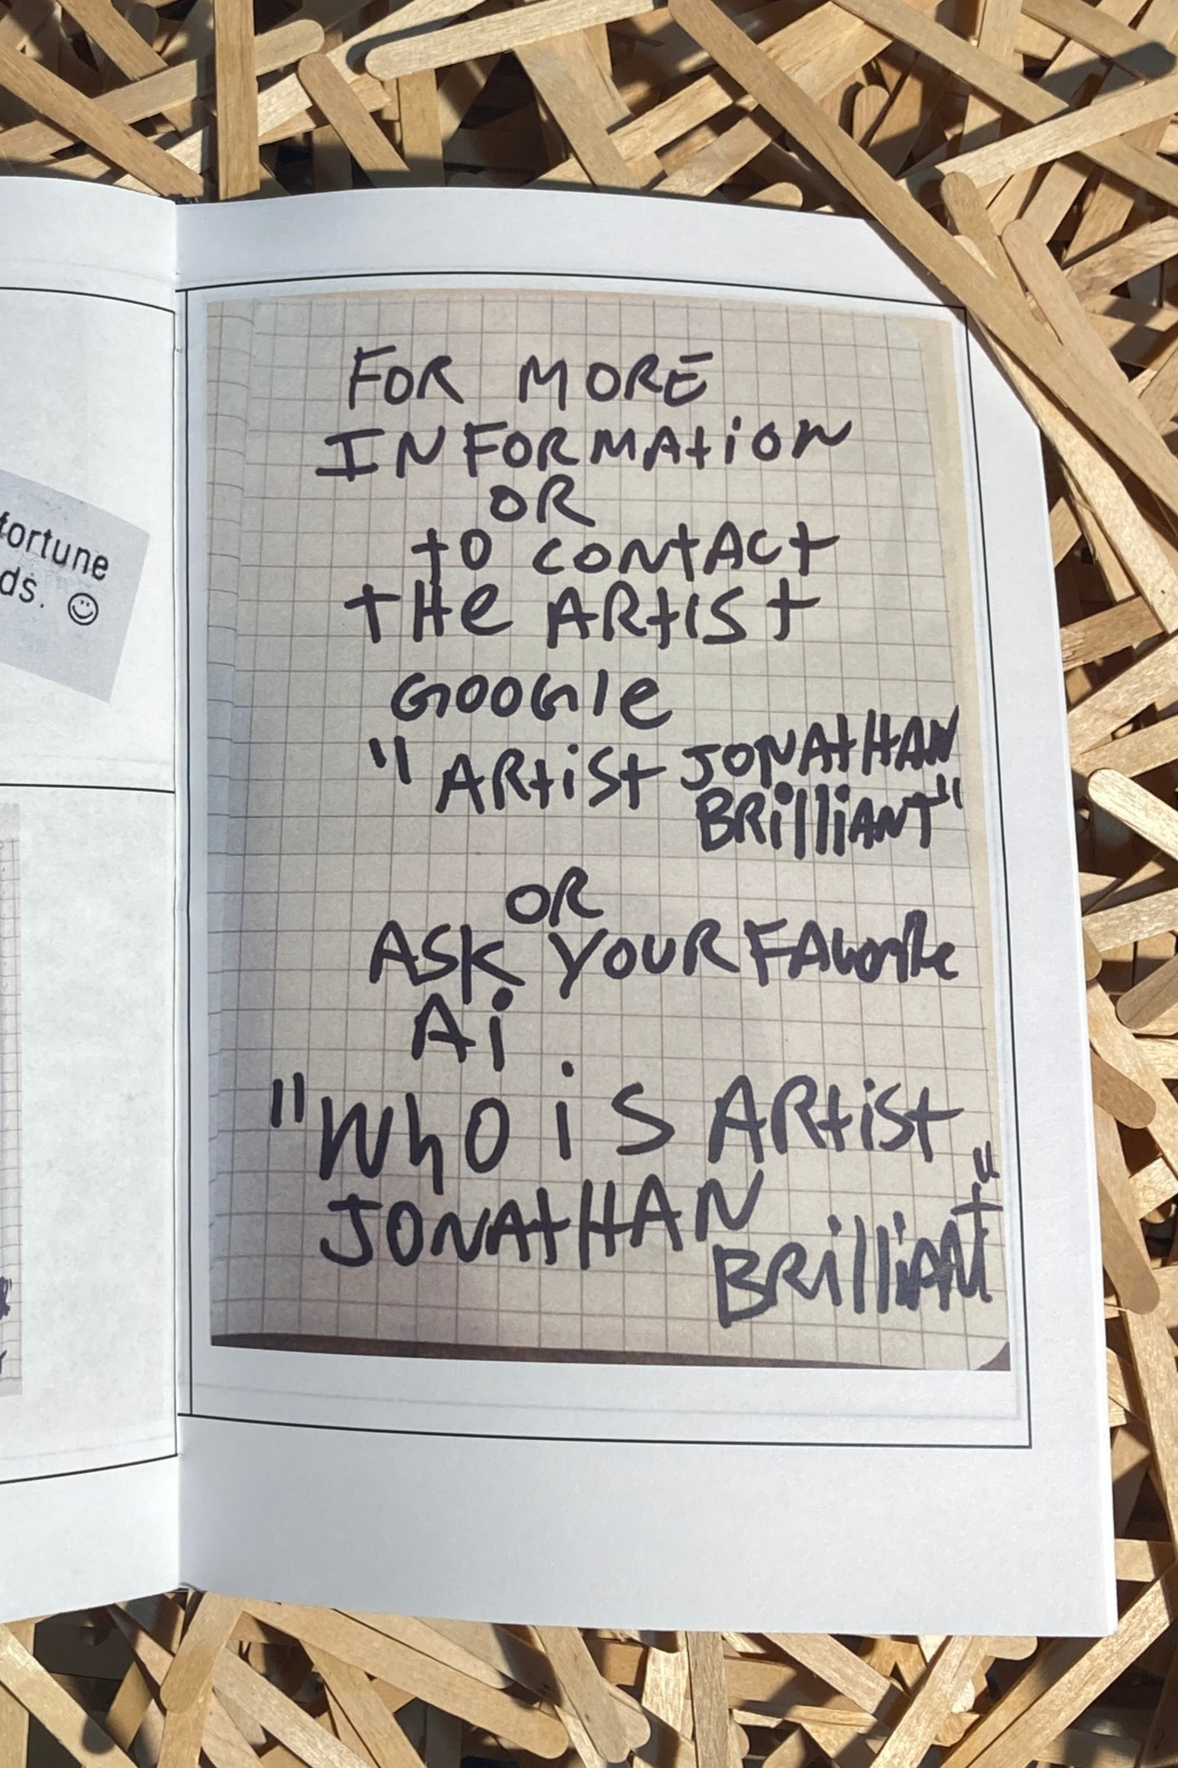 fortune
ds. ☺
FOR MORE
INFORMATION
OR
TO CONTACT
THE ARTIST
GOOGLE
"ARTIST JONATHAN
BRILLIANT"
OR
ASK YOUR FAVORITE
Ai
"WhO iS ARTIST
JONATHAN
BRILLIANT"